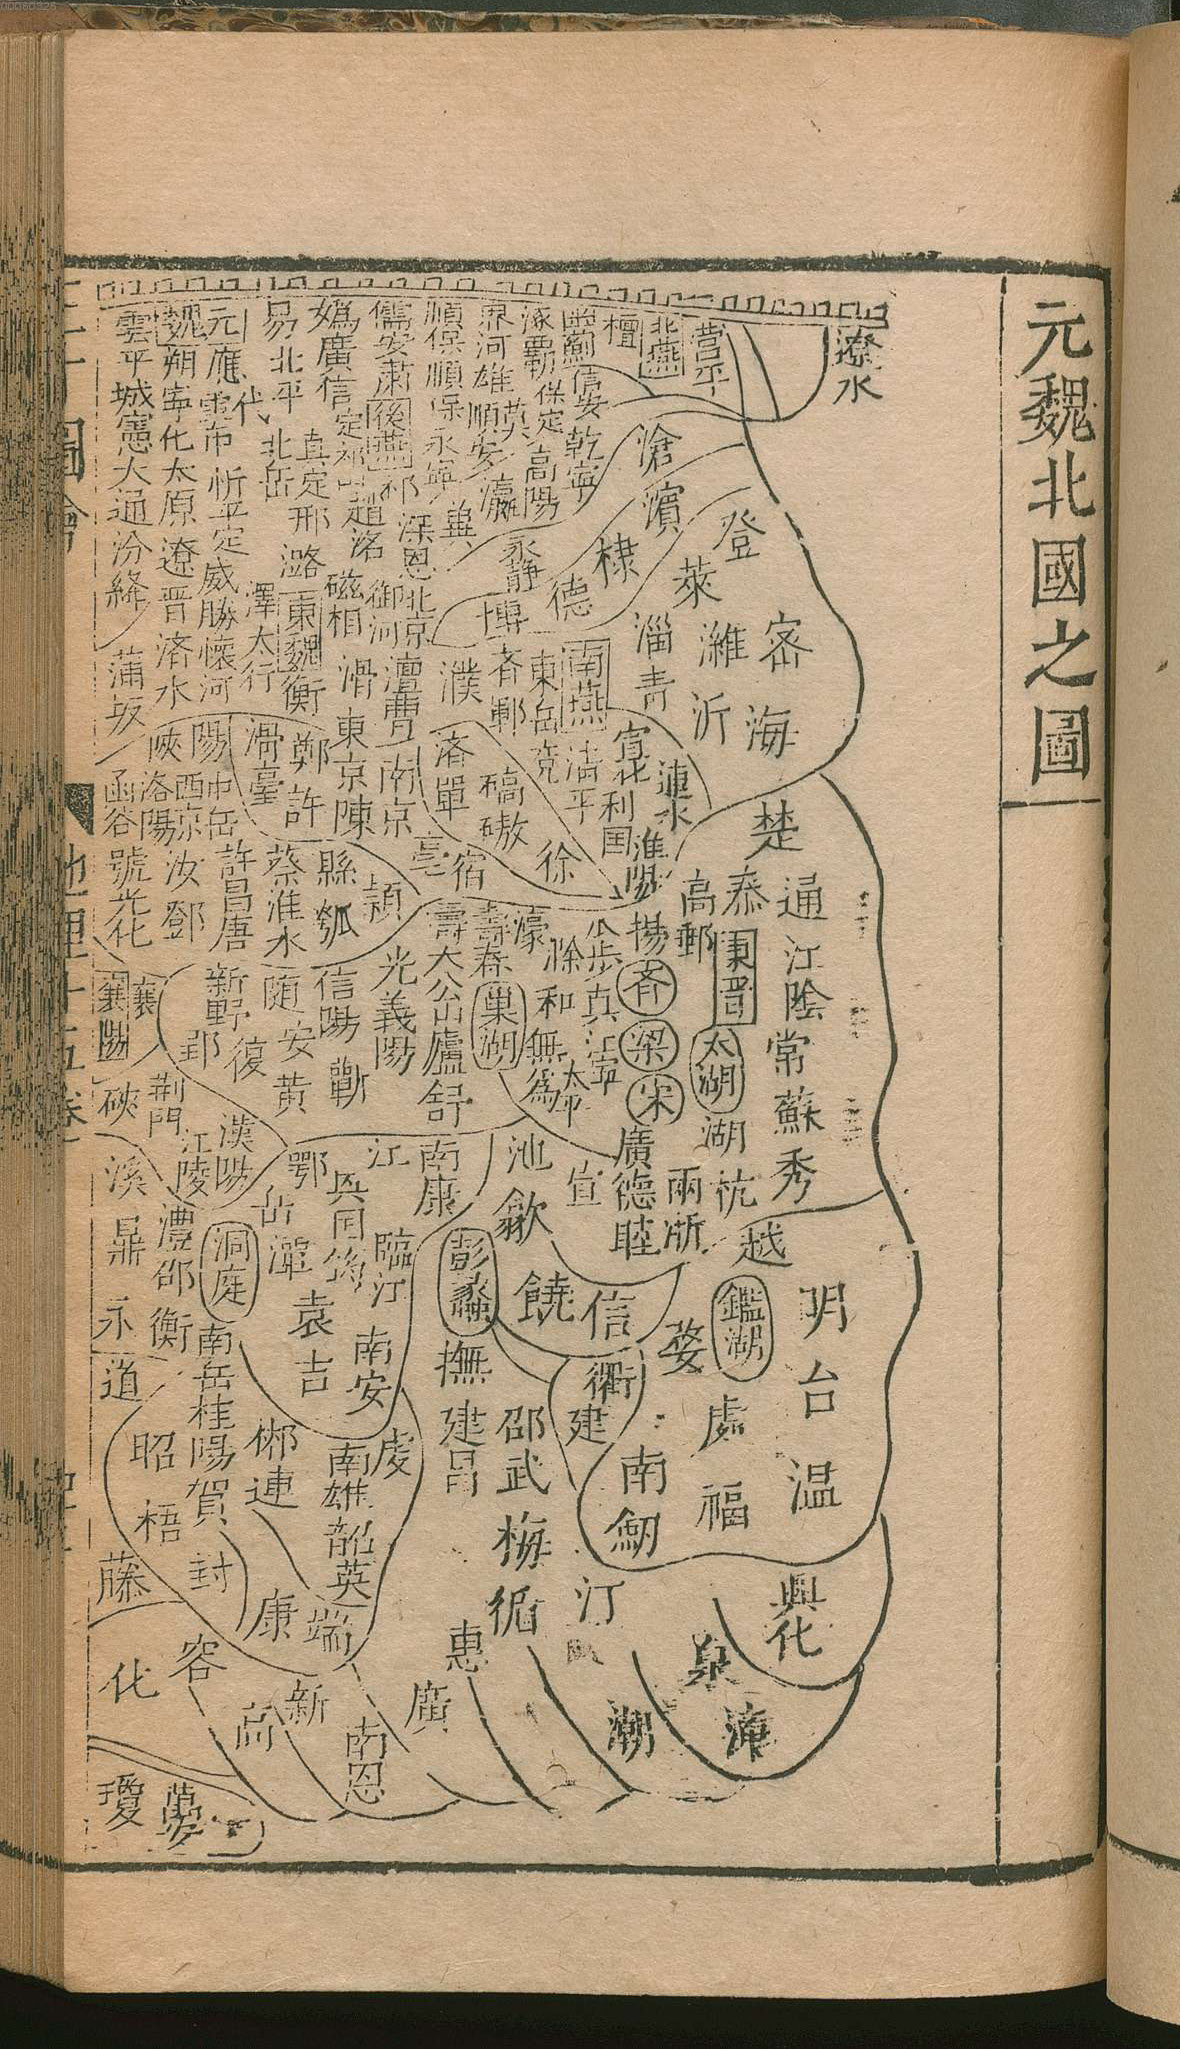 元魏北國之圖
遼水
營平
北燕
檀
薊信安乾寧
涿霸保定高陽
界河雄莫順安瀛
順保順保永寧
冀
儒安肅
後燕
祁
深恩北京
媯廣信定
趙洛
磁相
御河
澶曹
易北平
真定邢
潞
北岳
代
元
魏
應
忻平定威勝懷河
澤太行
朔寧化太原遼晉济水
雲平城憲大通汾絳
蒲坂
東魏
衡
滑
東京陳
南京
滄
濱
棣
德
永靜
博
濮
登
萊
淄青
濰
沂
密
海
南燕
清平
東岳兗
斉鄆
利国
漣水
淮陽
济單
碻磝
徐
宿
亳
鄭
許
滑臺
陽中岳
陝
洛陽
西京
函谷
虢光化
汝鄧
許昌唐
蔡淮水
縣瓠
潁
楚
通
泰
高郵
東晉
江陰
常蘇秀
太湖
湖杭
兩浙
揚
斉
梁
宋
廣德睦
真江寧
滁和無為
太平
濠
壽春
巢湖
壽大
廬舒
光義陽
信陽
蘄
随安黃
新野
復
郢
襄
襄陽
硤
荊門
江陵
漢陽
溪
鼎
澧邵衡
永
道
洞庭
鄂
岳潭
江
南康
兵国筠
袁吉
臨江
南安
池
歙
宣
彭蠡
饒
信
越
鑑湖
明
台
温
婺
處
福
衢
建
南劒
撫
建昌
邵武
梅循
汀
惠
廣
潮
漳
泉
興化
南岳桂陽賀
封
昭
梧
藤
郴連
南雄韶英
虔
康
端
新
南恩
高
容
化
瓊
萬安